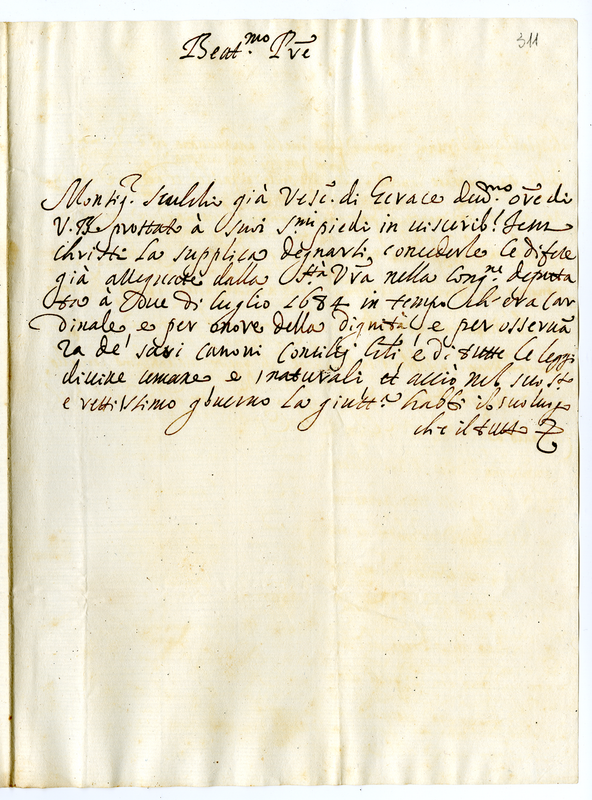 311
Beat.mo P̃re
Monsig.r già Vesc.o di Gerace deu.mo ore di
V. B. prostrato à suoi s.mi piedi in uiscerib.s Iesu
Christi La supplica degnarsi concederle le difese
già allegate dalla Stà Vr̃a nella Cong.ne deputa
ta à Due di luglio 1684 in tempo ch'era Car
dinale e per onore della dignità, e per osserua
za de' sacri canoni Concilij e di tutte le leggi
diuine umane e naturali et acciò nel suo s.to
e rettissimo gouerno La giust.a habbi il suo luogo
che il tutto